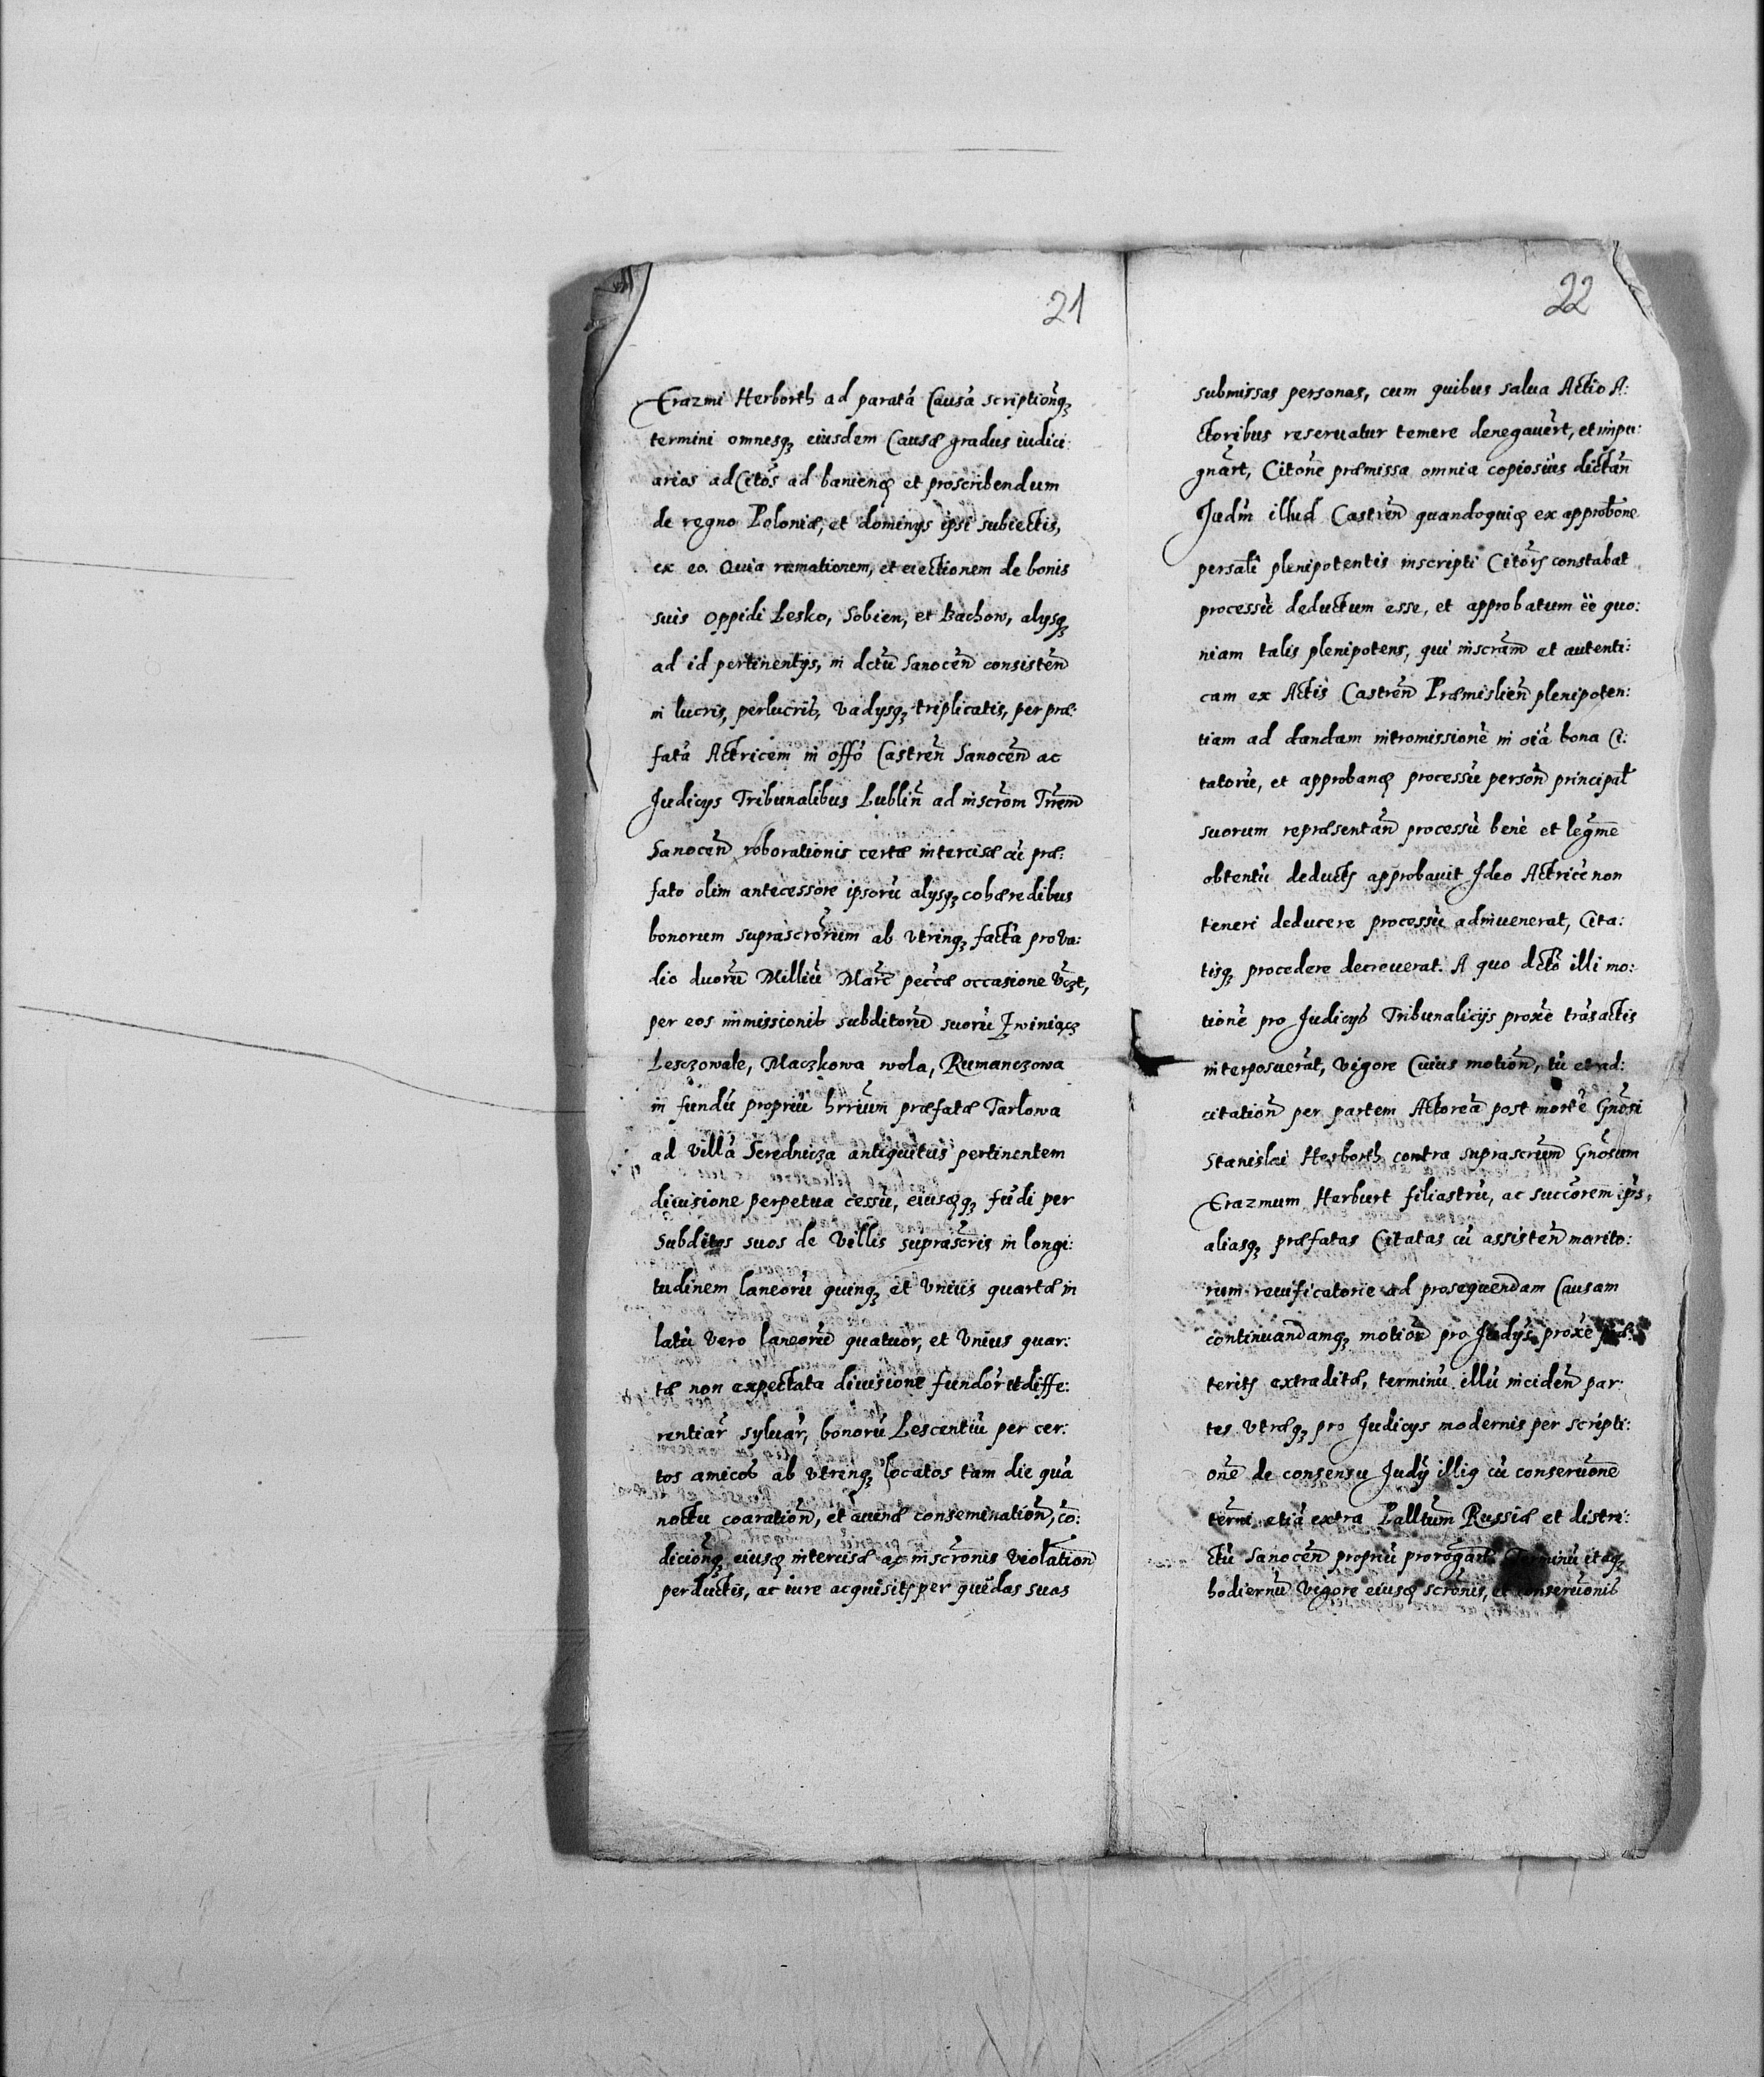 21
Erazmi Herborth ad paratã Causã scriptionq̃ʒ
termini omnesqʒ eiusdem Causæ gradus iudici:
arios ad Citos̃ ad baniend̃ et proscribendum
de regno Poloniæ, et dominys ipsi subiectis,
ex eo. Quia rumationem, et eiectionem de bonis
suis oppidi Lesko, Sobien, et Bachow, alysqʒ
ad id pertinentys, in dctũ Sanocen̄ consisten̄
in lucris, perlucris, vadysqʒ triplicatis, per præ:
fatã Actricem in offõ Castren̄ Sanocen̄ ac
Judicys Tribunalibus Lublin̄ ad inscrõm Trrem̄
Sanocen̄ roborationis certæ intercisæ cũ præ:
fato olim antecessore ipsorũ alysqʒ cohæredibus
bonorum suprascrõrum ab vtrinqʒ factã pro va:
dio duorũ Milliũ Marc̄ peccæ occasione vʒt,
per eos immissionis subditorũ suorũ Zwiniacʒ
Lesczowate, Maczkowa wola, Rumanczowa
in fundũ propriũ hrrium præfatæ Tarlowa
ad villã Serednicza antiquitus pertinentem
diuisione perpetua cessũ, eiusdqʒ fũdi per
Subditos suos de Villis suprascris̃ in longi:
tudinem laneorũ quinqʒ et vnius quartæ in
latũ vero laneorũ quatuor, et vnius quar:
tæ non expectata diuisione fundor̃ et diffe:
rentiar̃ syluar̃, bonorũ Lescentiũ per cer:
tos amicos ab vtrinqʒ locatos tam die quã
noctu coaration̄, et auenæ consemination̄, cõ:
dicionq̃ʒ eiusd̃ intercisæ ac inscrõnis violation̄
perductis, ac iure acquisitis per quasdã suas
22
submissas personas, cum quibus salua Actio A:
ctoribus reseruatur temere denegauer̃t, et impu:
gnãrt, Citõne præmissa omnia copiosius dictan̄
Judm̃ illud Castren̄ quandoquid̃ ex approbõne
persali plenipotentis inscripti Citõrs constabat
processũ deductum esse, et approbatum ẽe quo:
niam talis plenipotens, qui inscrãm et autenti:
cam ex Actis Castren̄ Præmislien̄ plenipoten:
tiam ad dandam intromissionẽ in oĩa bona Ci:
tatorũ, et approband̃ processũ person̄ principal̄
suorum repræsentan̄ processũ benè et legm̃e
obtentũ deductis approbauit Ideo Actricẽ non
teneri deducere processũ adinuenerat, Cita:
tisqʒ procedere decreuerat. A quo dctõ illi mo:
tionẽ pro Judicys Tribunalicijs proxẽ trãsactis
interposuerãt, vigore Cuius motion̄, tũ et ad:
citation̄ per partem Actoreã post mortẽ Gnõsi
Stanislai Herborth contra suprascrũm Gnõsum
Erazmum Herburt filiastrũ, ac succõrem ipis,
aliasqʒ præfatas Citatas cũ assisten̄ marito:
rum reuificatorie ad prosequendam Causam
continuandamqʒ motion̄ pro Judys proxẽ præ:
teritis extraditæ, terminũ illũ inciden̄ par:
tes vtræqʒ pro Judicys modernis per scripti:
onẽ de consensu Judy illiq cũ conseruõne
term̃i etiã extra Pallt̃um Russiæ et distri:
ctũ Sanocen̄ propriũ prorogãrt. Terminũ itaqʒ
hodiernũ vigore eiusd̃ scrõnis, et conseruõnis